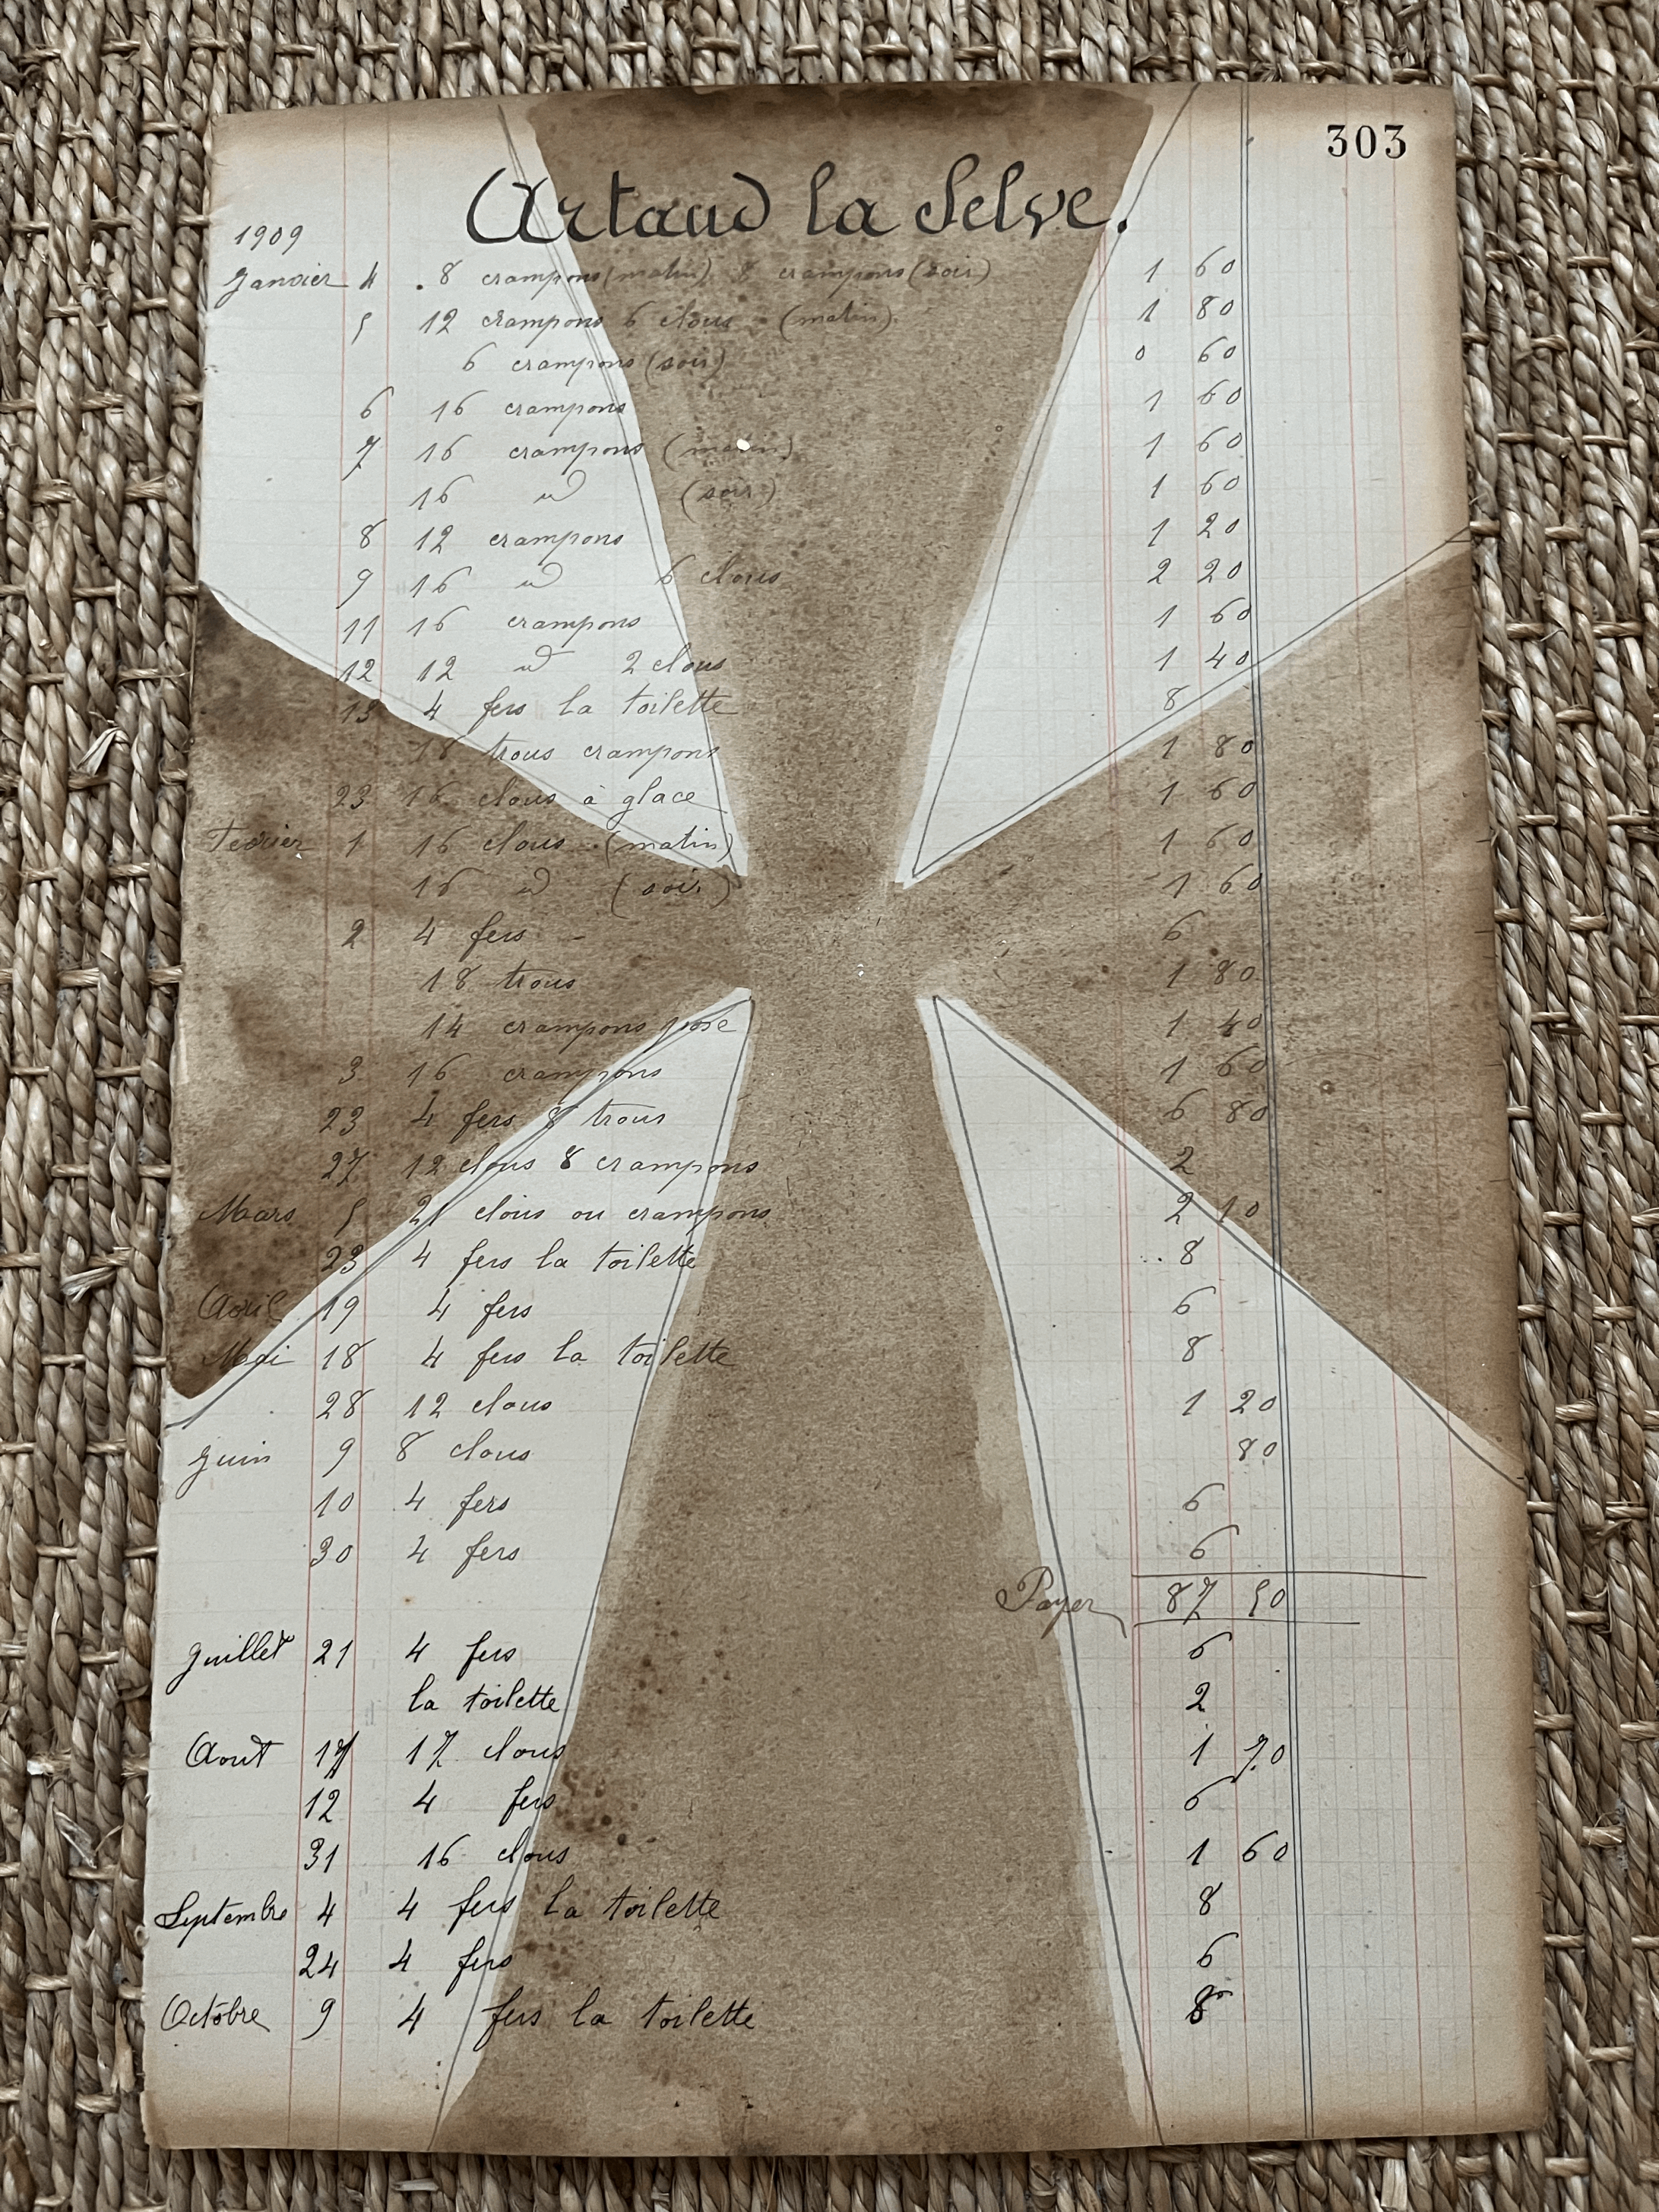 303
Artaud la Selve.
1909
Janvier 4 . 8 crampons (matin) 8 crampons (soir) 1 60
5 12 crampons 6 clous - (matin). 1 80
6 crampons (soir) 0 60
6 16 crampons 1 60
7 16 crampons (matin) 1 60
16 id (soir) 1 60
8 12 crampons 1 20
9 16 id 6 clous 2 20
11 16 crampons 1 60
12 12 id 2 clous 1 40
13 4 fers la toilette 8
18 trous crampons 1 80
23 16 clous à glace 1 60
Fevrier 1 16 clous - (matin) 1 60
16 id (soir) 1 60
2 4 fers - 6
18 trous 1 80
14 crampons pose 1 40
3 16 crampons 1 60
23 4 fers 8 trous 6 80
27 12 clous 8 crampons 2
Mars 5 21 clous ou crampons 2 10
23 4 fers la toilette 8
Avril 19 4 fers 6
Mai 18 4 fers la toilette 8
28 12 clous 1 20
Juin 9 8 clous 80
10 4 fers 6
30 4 fers 6
Payer 87 50
Juillet 21 4 fers 6
la toilette 2
Aout 17 17 clous 1 70
12 4 fers 6
31 16 clous 1 60
Septembre 4 4 fers la toilette 8
24 4 fers 6
Octobre 9 4 fers la toilette 8